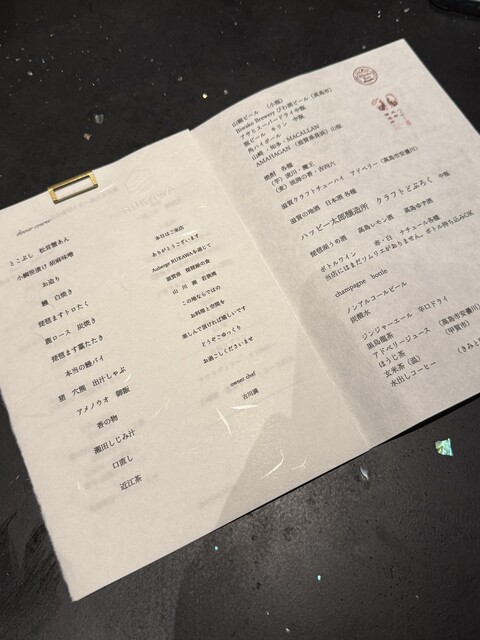 dinner course
とこぶし 松茸蟹あん
小鯛笹漬け 胡麻味噌
お造り
鰻 白焼き
琵琶ますトロたく
鹿ロース 炭焼き
琵琶ます藁たたき
本当の鰻パイ
猪 穴熊 出汁しゃぶ
アメノウオ 御飯
香の物
瀬田しじみ汁
口直し
近江茶
本日はご来店
ありがとうございます
Auberge RUKAWAを通じて
滋賀県 琵琶湖の食
山 川 湖 若狭湾
この地ならではの
お料理と空間を
楽しんで頂ければ嬉しいです
どうぞごゆっくり
お過ごしくださいませ
owner chef
古川
山崎ビール (小瓶)
Biwako Brewery びわ湖ビール (高島市)
アサヒスーパードライ中瓶
瓶ビール キリン 中瓶
角ハイボール
山崎・知多・MACALLAN
AMAHAGAN (滋賀 長浜) 山桜
焼酎 各種
(麦)
滋賀クラフトチューハイ アドベリー (高島市安曇川)
滋賀の地酒 日本酒 各種
ハッピー太郎醸造所 クラフトどぶろく 中瓶
琵琶湖うめ酒 高島レモン酒 高島ゆず酒
ボトルワイン 赤・白 ナチュール各種
当店にはまだソムリエがおりません。ボトル持ち込みOK
champagne bottle
ノンアルコールビール
炭酸水
ジンジャーエール 辛口ドライ
黒烏龍茶
アドベリージュース (高島市安曇川)
ほうじ茶 (甲賀市)
玄米茶 (温)
水出しコーヒー